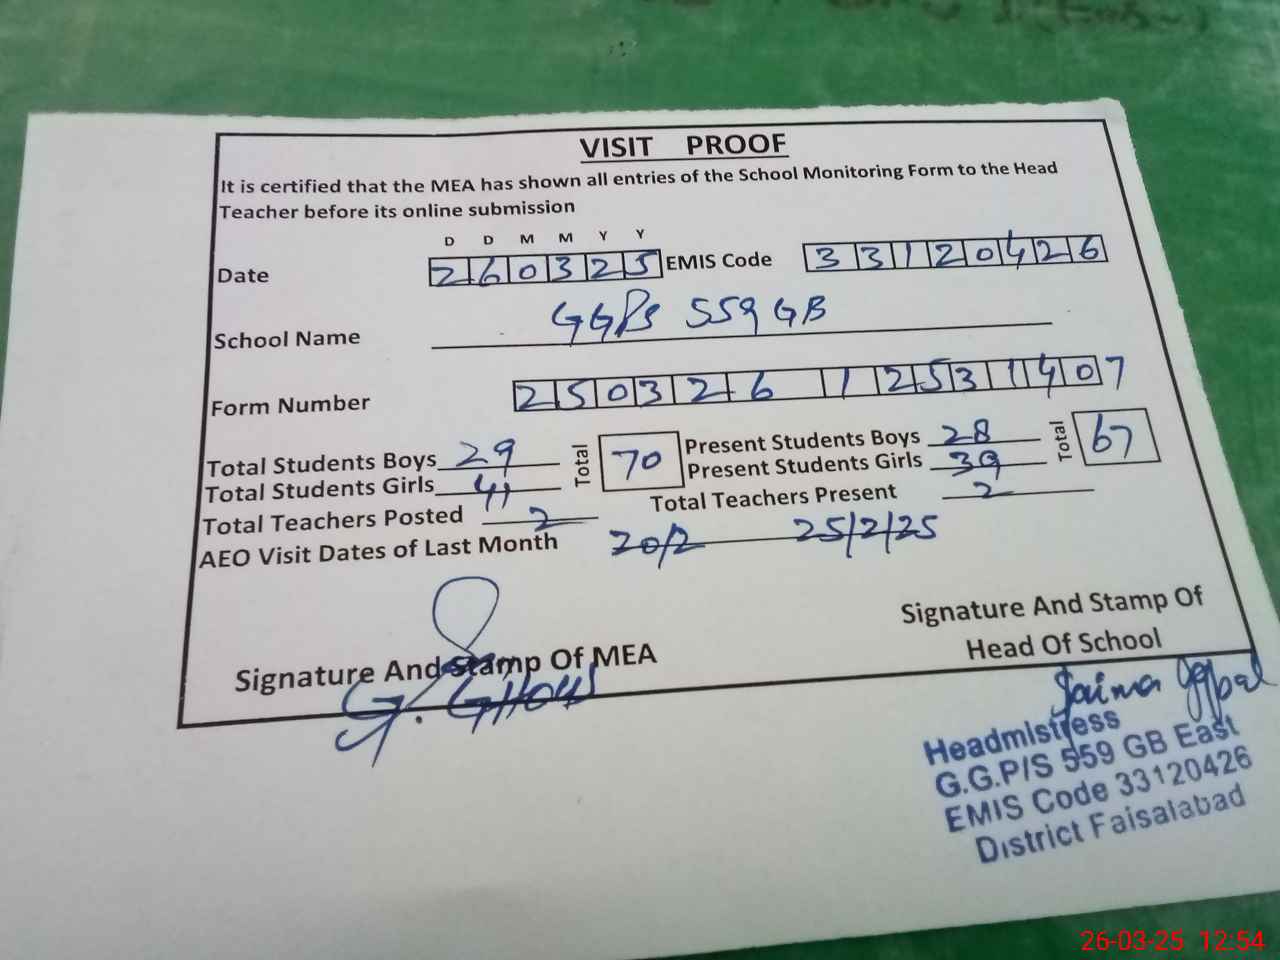 VISIT PROOF
It is certified that the MEA has shown all entries of the School Monitoring Form to the Head
Teacher before its online submission
D D M M Y Y
Date 260325 EMIS Code 33120426
School Name GGPS 559 GB
Form Number 250326 12531407
Total Students Boys 29 Total 70 Present Students Boys 28 Total 67
Total Students Girls 41 Present Students Girls 39
Total Teachers Posted 2 Total Teachers Present 2
AEO Visit Dates of Last Month 20/2 25/2/25
Signature And Stamp Of MEA
Signature And Stamp Of
Head Of School
Saima
HeadmIstress
G.G.P/S 559 GB East
EMIS Code 33120426
District Faisalabad
26-03-25 12:54